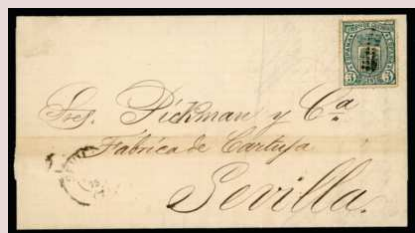 Sres. Pickman y Cª
Fabrica de Cartuja
Sevilla.